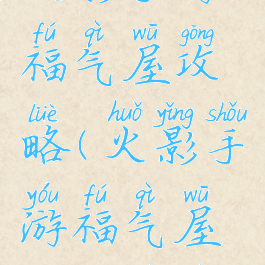 fú qì wū gōng
福气屋攻
lüè huǒ yǐng shǒu
略(火影手
yóu fú qì wū
游福气屋